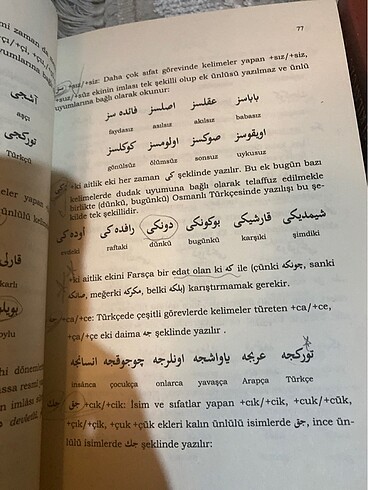 77
سز +sız/+siz: Daha çok sıfat görevinde kelimeler yapan +sız/+siz,
+suz/+süz ekinin imlası tek şekilli olup ek ünlüsü yazılmaz ve ünlü
uyumlarına bağlı olarak okunur:
باباسز عقلسز اصلسز فائده سز
faydasız asılsız akılsız babasız
اويقوسز صوكسز اولومسز كوكلسز
gönülsüz ölümsüz sonsuz uykusuz
+ki aitlik eki her zaman كى şeklinde yazılır. Bu ek bugün bazı
kelimelerde dudak uyumuna bağlı olarak telaffuz edilmekle
birlikte (dünkü, bugünkü) Osmanlı Türkçesinde yazılışı bu şe-
kilde tek şekillidir.
شيمديكى قارشيكى بوكونكى دونكى رافده كى اوده كى
evdeki raftaki dünkü bugünkü karşıki şimdiki
+ki aitlik ekini Farsça bir edat olan ki كه ile (çünki چونكه, sanki
صانكه, meğerki مكركه, belki بلكه) karıştırmamak gerekir.
+ca/+ce: Türkçede çeşitli görevlerde kelimeler türeten +ca/+ce,
+ça/+çe eki daima جه şeklinde yazılır .
توركجه عربجه ياواشجه اونلرجه چوجوقجه انسانجه
insânca çocukça onlarca yavaşça Arapça Türkçe
جق جك +cık/+cik: İsim ve sıfatlar yapan +cık/+cik, +cuk/+cük,
+çık/+çik, +çuk +çük ekleri kalın ünlülü isimlerde جق, ince ün-
lülü isimlerde جك şeklinde yazılır:
آشجى
aşçı
توركجى
Türkçü